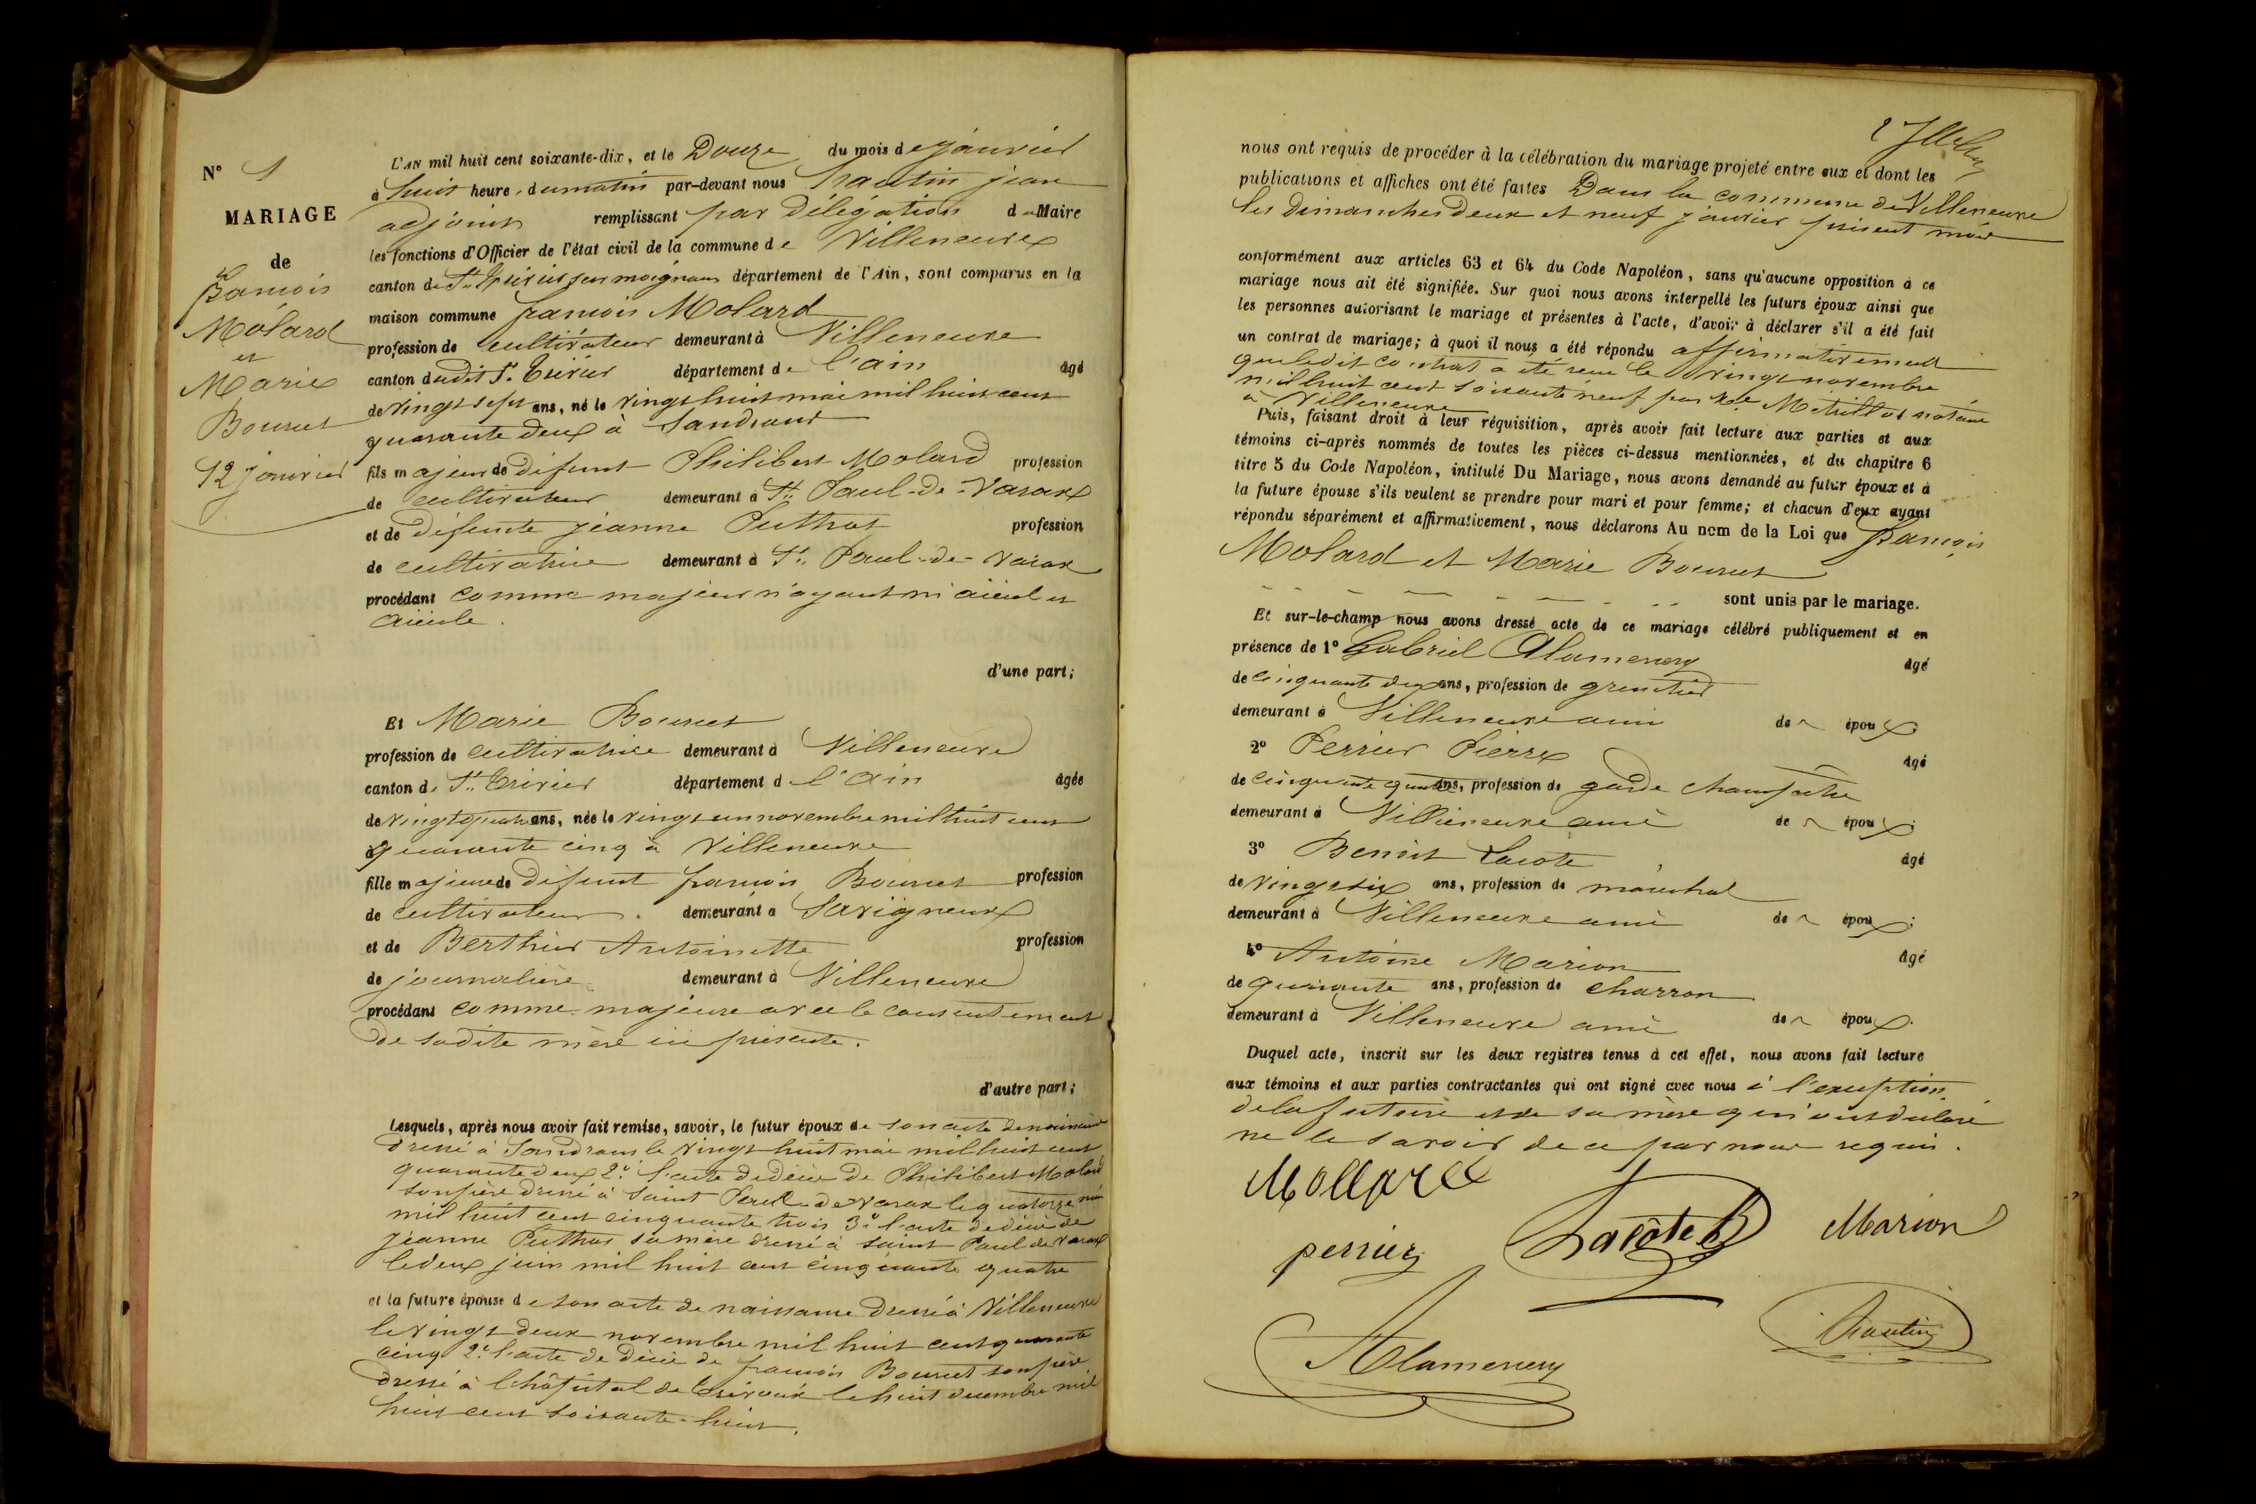 N° 1
MARIAGE
de
françois
Molard
et
Marie
Bourret
12 janvier
L'AN mil huit cent soixante-dix, et le Douze du mois de janvier
à huit heure du matin par-devant nous hautin jean
adjoint remplissant par Délégation du Maire
les fonctions d'Officier de l'état civil de la commune de Villeneuve
canton de St Trivier sur moignans département de l'Ain, sont comparus en la
maison commune françois Molard
profession de cultivateur demeurant à Villeneuve
canton dudit St Trivier département de l'ain âgé
de vingt sept ans, né le vingt huit mai mil huit cent
quarante deux à Sandrans
fils majeur de défunt Philibert Molard profession
de cultivateur demeurant à St Paul-de-Varax
et de défunte jeanne Puthod profession
de cultivatrice demeurant à St Paul-de-Varax
procédant comme majeur n'ayant ni aïeul et
aïeule.
d'une part;
Et Marie Bourret
profession de cultivatrice demeurant à Villeneuve
canton de St Trivier département de l'ain âgée
de vingt quatre ans, née le vingt un novembre mil huit cent
quarante cinq à Villeneuve
fille majeure de défunt françois Bourret profession
de cultivateur demeurant à Savigneux
et de Berthier Antoinette profession
de journalière demeurant à Villeneuve
procédant comme majeure avec le consentement
de sadite mère ici présente.
d'autre part;
Lesquels, après nous avoir fait remise, savoir, le futur époux de son acte de naissance
dressé à Sandrans le vingt huit mai mil huit cent
quarante deux 2° l'acte de décès de Philibert Molard
son père dressé à Saint Paul-de-Varax le quatorze mai
mil huit cent cinquante trois 3° l'acte de décès de
jeanne Puthod sa mère dressé à Saint Paul de Varax
le deux juin mil huit cent cinquante quatre
et la future épouse de son acte de naissance dressé à Villeneuve
le vingt deux novembre mil huit cent quarante
cinq 2° l'acte de décès de françois Bourret son père
dressé à l'hôpital de Trévoux le huit décembre mil
huit cent soixante-huit.
2
nous ont requis de procéder à la célébration du mariage projeté entre eux et dont les
publications et affiches ont été faites Dans la commune de Villeneuve
les dimanches deux et neuf janvier présent mois
conformément aux articles 63 et 64 du Code Napoléon, sans qu'aucune opposition à ce
mariage nous ait été signifiée. Sur quoi nous avons interpellé les futurs époux ainsi que
les personnes autorisant le mariage et présentes à l'acte, d'avoir à déclarer s'il a été fait
un contrat de mariage; à quoi il nous a été répondu affirmativement
que ledit contrat a été reçu le vingt novembre
mil huit cent soixante neuf par Me Métrillot notaire
à Villeneuve
Puis, faisant droit à leur réquisition, après avoir fait lecture aux parties et aux
témoins ci-après nommés de toutes les pièces ci-dessus mentionnées, et du chapitre 6
titre 5 du Code Napoléon, intitulé Du Mariage, nous avons demandé au futur époux et à
la future épouse s'ils veulent se prendre pour mari et pour femme; et chacun d'eux ayant
répondu séparément et affirmativement, nous déclarons Au nom de la Loi que françois
Molard et Marie Bourret
sont unis par le mariage.
Et sur-le-champ nous avons dressé acte de ce mariage célébré publiquement et en
présence de 1° Gabriel Alamercery âgé
de cinquante deux ans, profession de grenetier
demeurant à Villeneuve ami des époux
2° Perrier Pierre âgé
de cinquante quatre ans, profession de garde champêtre
demeurant à Villeneuve ami des époux
3° Benoit Lacote âgé
de vingt six ans, profession de maréchal
demeurant à Villeneuve ami des époux
4° Antoine Marion âgé
de quarante ans, profession de charron
demeurant à Villeneuve ami des époux
Duquel acte, inscrit sur les deux registres tenus à cet effet, nous avons fait lecture
aux témoins et aux parties contractantes qui ont signé avec nous à l'exception
de la future et de sa mère qui ont déclaré
ne le savoir de ce par nous requis.
Mollard
perrier Lacôte B Marion
Alamercery hautin